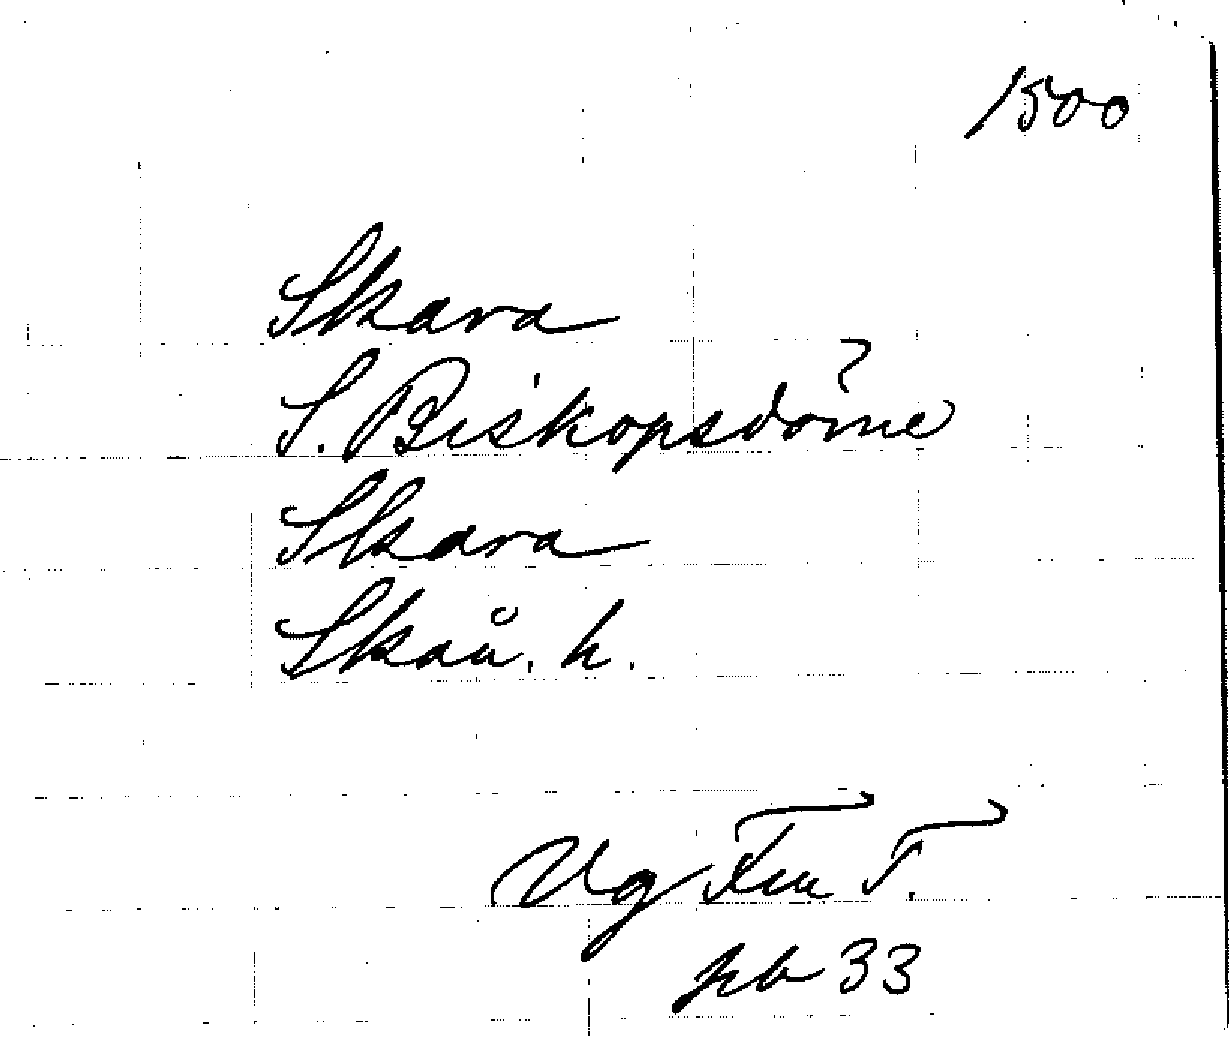 1500
Skara
S. Biskopsdöme
Skara
Skån. h.
Vg Fm T.
pb 33